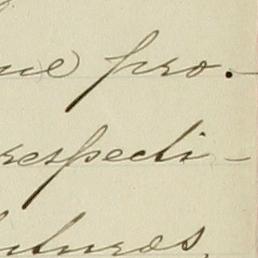 ue pro.-
respecti-
uturos,